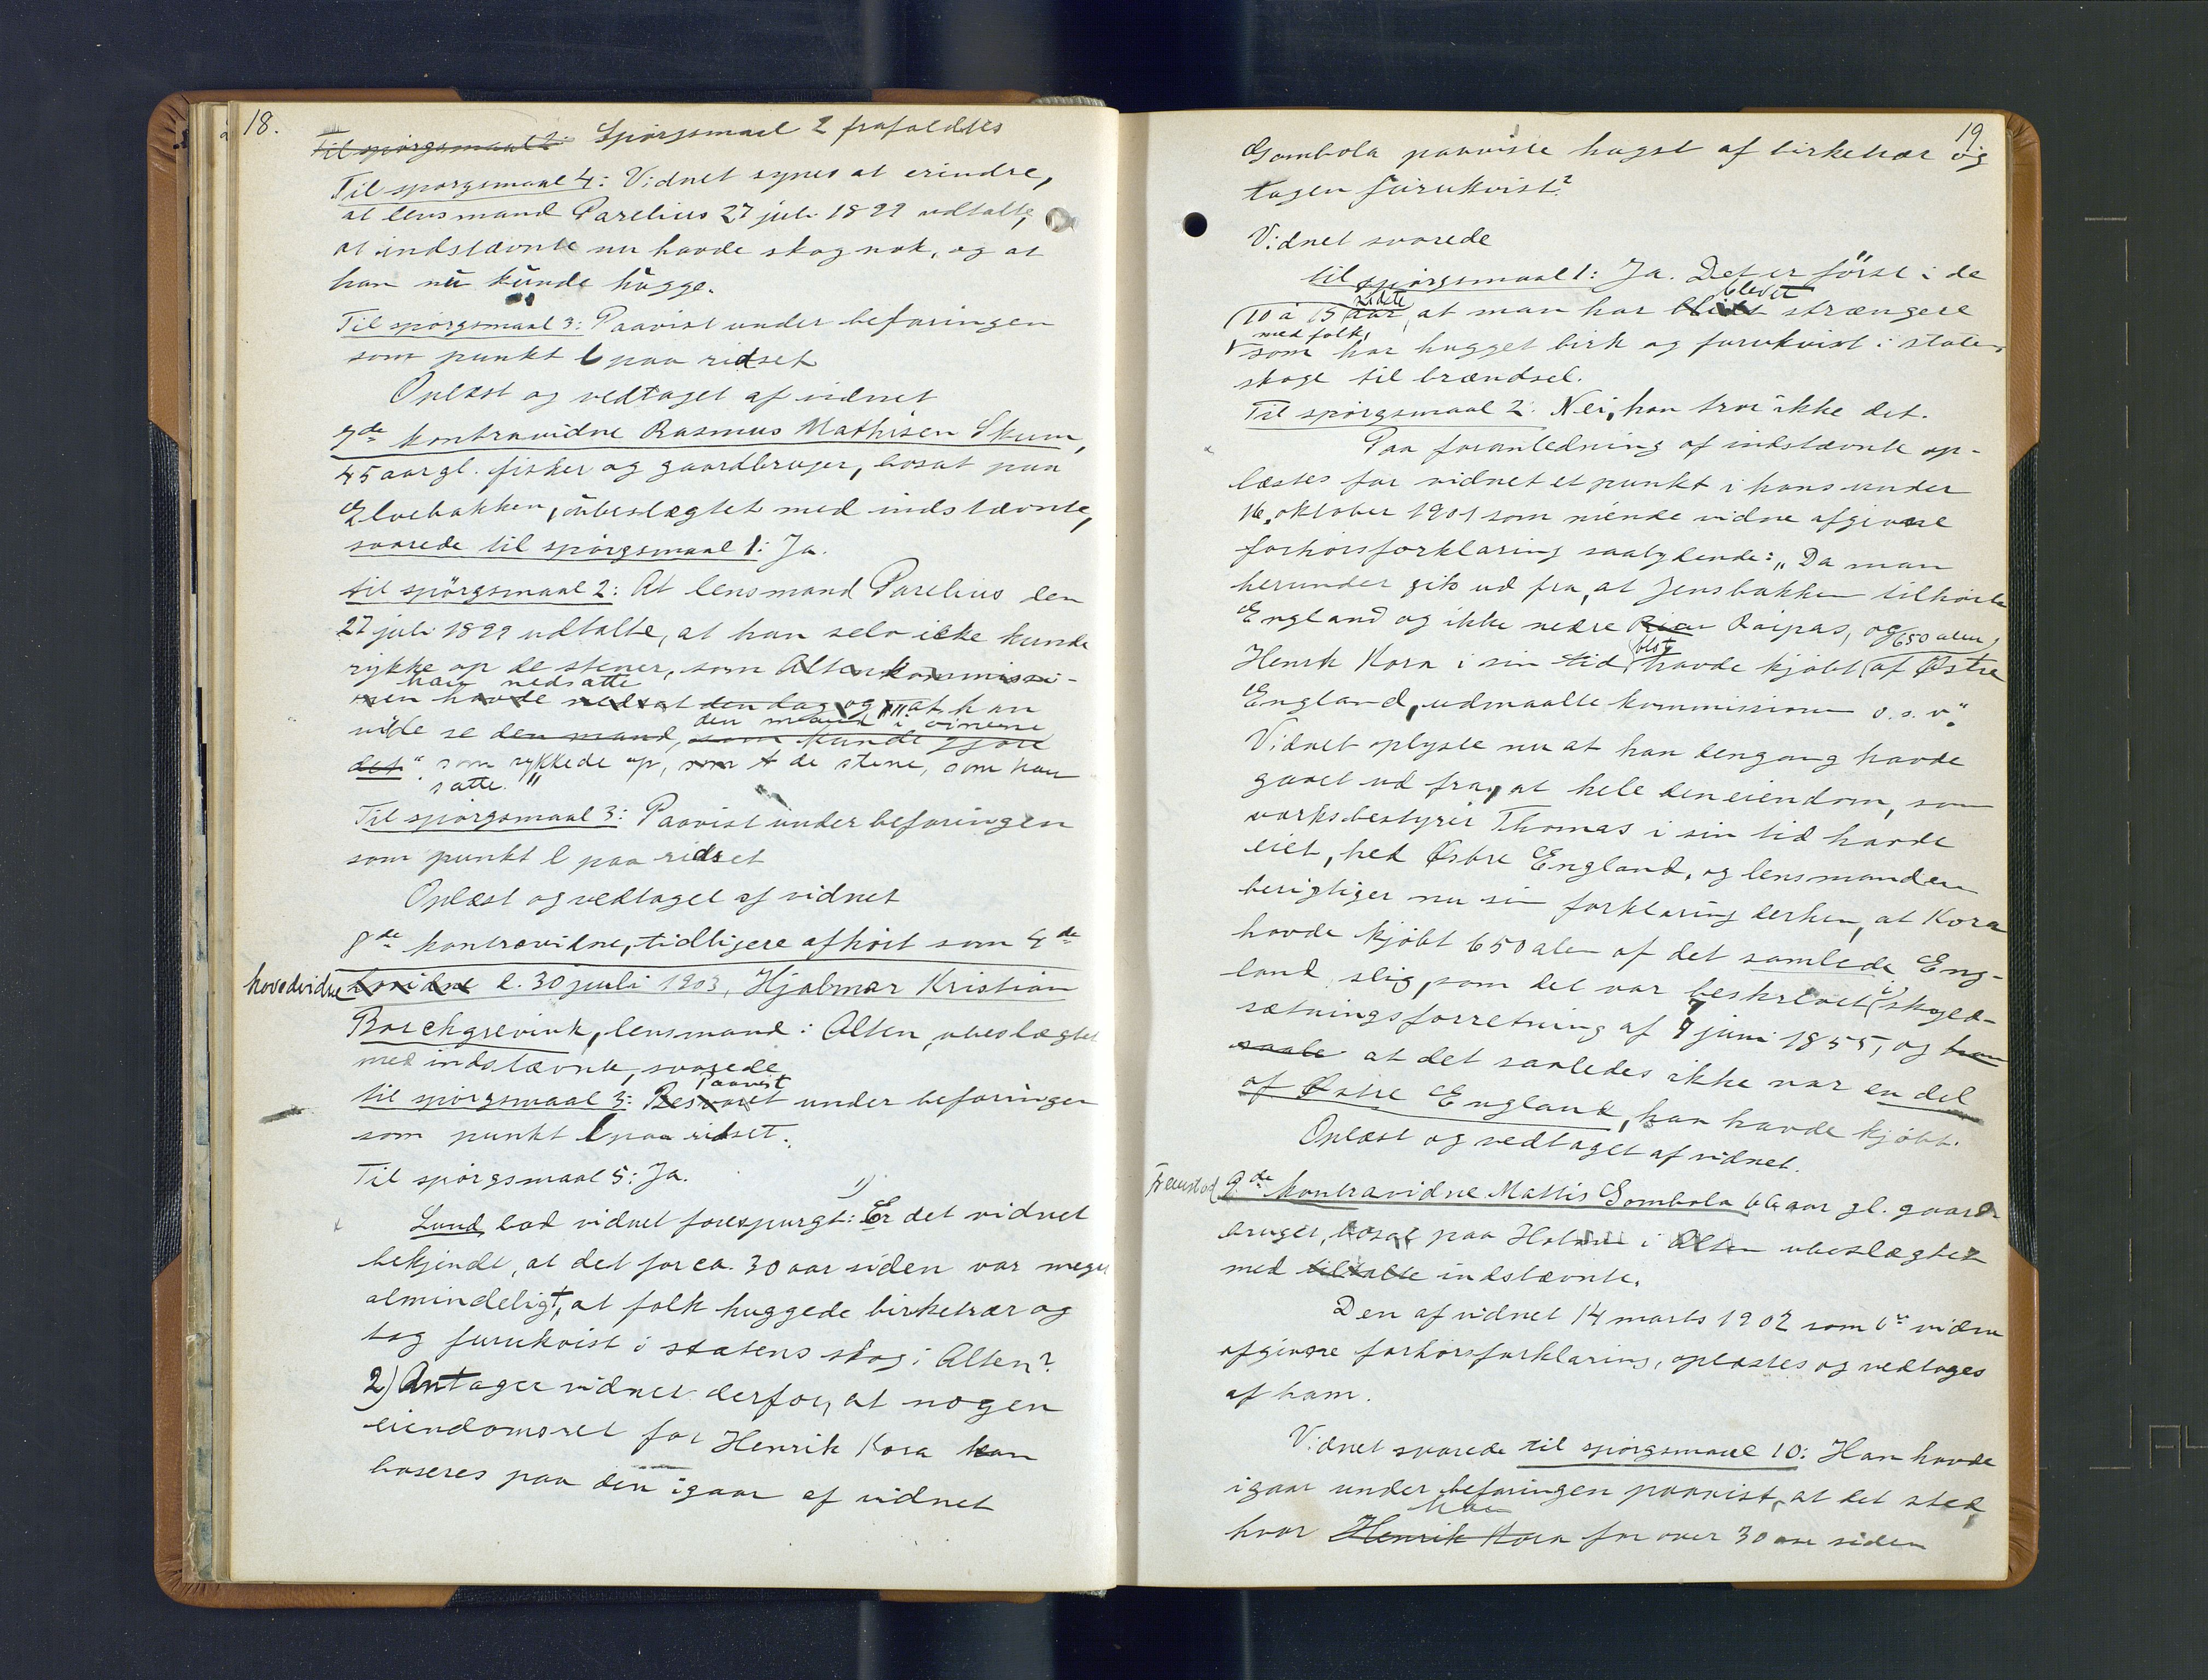 18.
Til spørgsmaal 2: Spørgsmaal 2 frafaldtes
Til spørgsmaal 4: Vidnet synes at erindre,
at lensmand Parelius 27 juli 1899 udtalte,
at indstævnte nu havde skog nok, og at
han nu kunde hugge.
Til spørgsmaal 3: Paavist under befaringen
som punkt l paa ridset
Oplæst og vedtaget af vidnet
7de kontravidne Rasmus Mathisen Skum,
45 aar gl. fisker og gaardbruger, bosat paa
Elvebakken, ubeslægtet med indstævnte,
svarede til spørgsmaal 1: Ja.
til spørgsmaal 2: At lensmand Parelius den
27 juli 1899 udtalte, at han selv ikke kunde
rykke op de stener, som Altenkommissi-
han nedsatte
onen havde nedsat den dag og "at han
den mand i øinene
vilde se den mand, som kunde gjøre
det" som rykkede op, som de stene, som han
satte."
Til spørgsmaal 3: Paavist under befaringen
som punkt l paa ridset
Oplæst og vedtaget af vidnet
8de kontravidne, tidligere afhørt som 4de
hovedvidne d. 30 juli 1903, Hjalmar Kristian
Borchgrevink, lensmand i Alten, ubeslægtet
med indstævnte, svarede
Paavist
til spørgsmaal 3: Besvaret under befaringen
som punkt l paa ridset.
Til spørgsmaal 5: Ja.
1)
Lund lod vidnet forespurgt: Er det vidnet
bekjendt, at det for ca. 30 aar siden var meget
almindeligt, at folk huggede birketrær og
tog furukvist i statens skog i Alten?
2) Antager vidnet derfor, at nogen
eiendomsret for Henrik Kora kan
baseres paa den igaar af vidnet
19
Gombola paaviste hugst af birketrær og
tagen furukvist?
Vidnet svarede
til spørgsmaal 1: Ja. Det er først i de
sidste blevet
10 à 15 aar, at man har blitt strængere
med folk,
som har hugget birk og furukvist i statens
skoge til brændsel.
Til spørgsmaal 2: Nei, han tror ikke det.
Paa foranledning af indstævnte op-
læstes for vidnet et punkt i hans under
16. oktober 1901 som niende vidne afgivne
forhørsforklaring saalydende: "Da man
herunder gik ud fra, at Jensbakken tilhørte
England og ikke nedre Raipas, og
650 alen
Henrik Kora i sin tid havde kjøbt af Østre
England, udmaalte kommissionen o.s.v."
Vidnet oplyste nu at han dengang havde
gaaet ud fra, at hele den eiendom, som
værksbestyrer Thomas i sin tid havde
eiet, hed Østre England, og lensmanden
berigtiger nu sin forklaring derhen, at Kora
havde kjøbt 650 alen af det samlede Eng-
land, slig, som det var beskrevet i skyld-
sætningsforretning af 7 juni 1855, og
at det saaledes ikke var en del
af Østre England, han havde kjøbt.
Oplæst og vedtaget af vidnet.
Fremstod 9de kontravidne Mattis Gombola 66 aar gl. gaard-
bruger, bosat paa i Alten ubeslægtet
med tiltalte indstævnte.
Den af vidnet 14 marts 1902 som 6te vidne
afgivne forhørsforklaring, oplæstes og vedtoges
af ham.
Vidnet svarede til spørgsmaal 10: Han havde
igaar under befaringen paavist, at det sted,
han
hvor Henrik Kora for over 30 aar siden